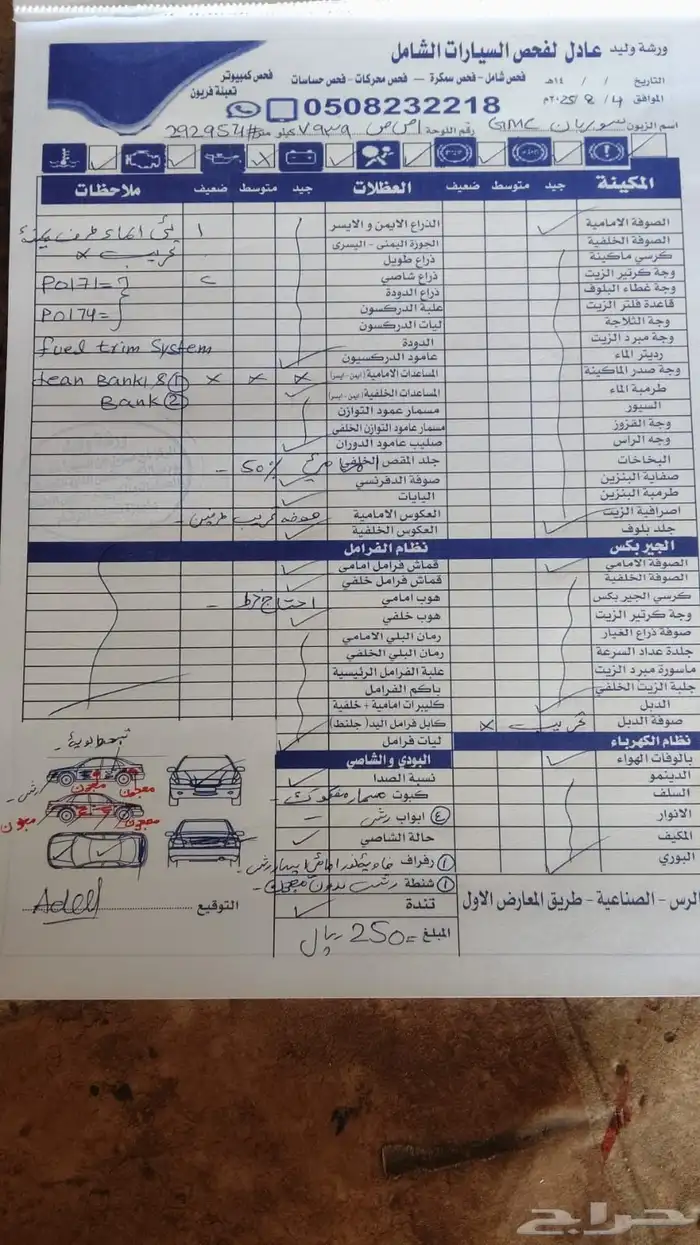 ورشة وليد عادل لفحص السيارات الشامل
فحص شامل - فحص سمكرة - فحص محركات - فحص حساسات
فحص كمبيوتر
تعبئة فريون
التاريخ / / ١٤هـ
الموافق 4 / 8 / 2025م
0508232218
اسم الزبون سوربان GMC رقم اللوحة ٧٩٣٩ كيلو متر 292954
المكينة جيد متوسط ضعيف
الصوفة الامامية
الصوفة الخلفية
كرسي ماكينة
وجة كرتير الزيت
وجة غطاء البلوف
قاعدة فلتر الزيت
وجة الثلاجة
وجة مبرد الزيت
رديتر الماء
وجة صدر الماكينة
طرمبة الماء
السيور
وجة القزوز
وجه الراس
البخاخات
صفاية البنزين
طرمبة البنزين
اصرافية الزيت
جلد بلوف
الجير بكس
الصوفة الامامي
الصوفة الخلفية
كرسي الجير بكس
وجة كرتير الزيت
صوفة ذراع الغيار
جلدة عداد السرعة
ماسورة مبرد الزيت
جلبة الزيت الخلفي
الدبل
صوفة الدبل تهريب x
نظام الكهرباء
بالوفات الهواء
الدينمو
السلف
الانوار
المكيف
البوري
العظلات جيد متوسط ضعيف ملاحظات
الذراع الايمن و الايسر
الجوزة اليمنى - اليسرى
ذراع طويل
ذراع شاصي
ذراع الدودة
علبة الدركسون
ليات الدركسون
الدودة
عامود الدركسيون
المساعدات الامامية (ايمن - ايسر) x x x
المساعدات الخلفية (ايمن - ايسر)
مسمار عمود التوازن
مسمار عامود التوازن الخلفي
صليب عامود الدوران
جلد المقص الخلفي 50%
صوفة الدفرنسي
اليايات
العكوس الامامية
العكوس الخلفية
تهريب x
P0171=
P0174=
fuel trim System
lean Bank1 & ①
Bank ②
نظام الفرامل
قماش فرامل امامي
قماش فرامل خلفي
هوب امامي احتاج خرط
هوب خلفي
رمان البلي الامامي
رمان البلي الخلفي
علبة الفرامل الرئيسية
باكم الفرامل
كليبرات امامية + خلفية
كابل فرامل اليد (جلنط)
ليات فرامل
البودي و الشاصي
نسبة الصدا
كبوت
٤ ابواب رش
حالة الشاصي
رفراف
شنطة رش بدون معجون
تندة
المبلغ = 250 ريال
رش
معجون
معجون
معجون
معجون
التوقيع Adel
الرس - الصناعية - طريق المعارض الاول
حراج